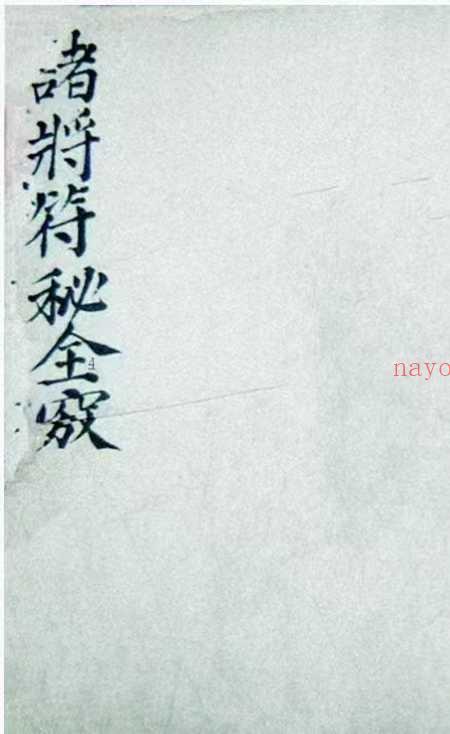 諸將符秘全竅
4
nayo